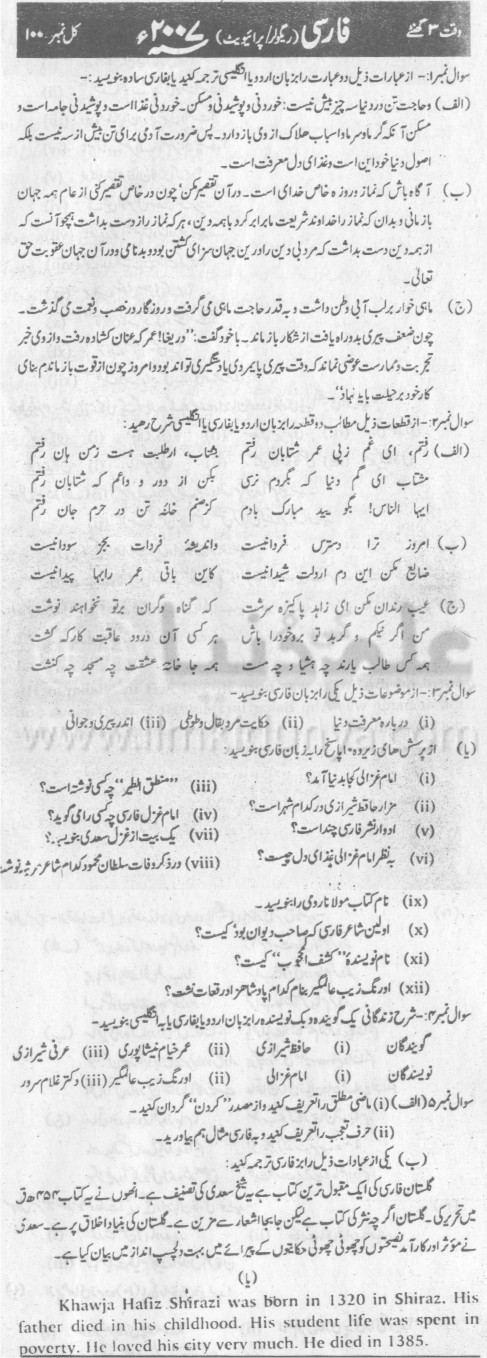 وقت ۳ گھنٹے فارسی (ریگولر/پرائیویٹ) ۲۰۰۷ء کل نمبر ۱۰۰
سوال نمبر۱:- از عبارات ذیل دو عبارت را بزبان اردو یا انگلیسی ترجمہ کنید یا بفارسی سادہ بنویسید:-
(الف) و حاجت تن در دنیا سہ چیز بیش نیست: خوردنی و پوشیدنی و مسکن۔ خوردنی غذا است و پوشیدنی جامہ است و
مسکن آنکہ گرما و سرما و اسباب ہلاک از وی باز دارد۔ پس ضرورت آدمی برای تن بیش از سہ نیست بلکہ
اصول دنیا خود این است و غذای دل معرفت است۔
(ب) آگاہ باش کہ نماز و روزہ خاص خدای است۔ در آن تقصیر مکن، چون در خاص تقصیر کنی از عام ہمہ جہان
بازمانی و بدان کہ نماز را خداوند شریعت ما برابر کرد با ہمہ دین، ہر کہ نماز را از دست بداشت ہمچو آنست کہ
از ہمہ دین دست بداشت کہ مرد بی دین را درین جہان سزای کشتن بود و بدنامی و در آن جہان عقوبت حق
تعالیٰ۔
(ج) ماہی خوار بر لب آبی وطن داشت و بہ قدر حاجت ماہی می گرفت و روزگار در خصب و نعمت می گذشت۔
چون ضعف پیری بدو راہ یافت از شکار باز ماند۔ با خود گفت: "دریغا! عمر کہ عنان کشادہ رفت و از وی خبر
تجربت و ممارست عوضی نماند کہ وقت پیری پایمردی یا دستگیری تواند بود و امروز چون از قوت باز ماندہ ام بنای
کار خود بر حیلت باید نہاد"۔
سوال نمبر۲:- از قطعات ذیل مطالب دو قطعہ را بزبان اردو یا بفارسی یا انگلیسی شرح دہید:-
(الف) رفتم، ای غم زپی عمر شتابان رفتم بشتاب، ار طلبت ہست زمن ہان رفتم
مشتاب ای گم دنیا کہ بگردم نرسی بکن از دور و داعم کہ شتابان رفتم
ایہا الناس! بگویید مبارک بادم کز صنم خانۂ تن در حرم جان رفتم
(ب) امروز ترا دسترس فردا نیست واندیشۂ فردات بجز سودا نیست
ضایع مکن این دم ار دلت شیدا نیست کاین باقی عمر را بہا پیدا نیست
(ج) عیب رندان مکن ای زاہد پاکیزہ سرشت کہ گناہ دگران بر تو نخواہند نوشت
من اگر نیکم و گر بد تو برو خود را باش ہر کسی آن درود عاقبت کار کہ کشت
ہمہ کس طالب یارند چہ ہشیار و چہ مست ہمہ جا خانۂ عشقت چہ مسجد چہ کنشت
سوال نمبر۳:- از موضوعات ذیل یکی را بزبان فارسی بنویسید:-
(i) دربارہ معرفت دنیا (ii) حکایت مرد بقال و طوطی (iii) اندر پیری و جوانی
(یا) از پرسش ہای زیر دہ، ۱۰ پاسخ را بہ زبان فارسی بنویسید:
(i) امام غزالی کجا بدنیا آمد؟ (iii) "منطق الطیر" چہ کسی نوشتہ است؟
(ii) مزار حافظ شیرازی در کدام شہر است؟ (iv) امام غزل فارسی چہ کسی را می گوید؟
(v) ادوار نثر فارسی چند است؟ (vii) یک بیت از غزل سعدی بنویسید؟
(vi) بہ نظر امام غزالی غذای دل چیست؟ (viii) در ذکر وفات سلطان محمود کدام شاعر مرثیہ نوشتہ
(ix) نام کتاب مولانا رومی را بنویسید۔
(x) اولین شاعر فارسی کہ صاحب دیوان بود کیست؟
(xi) نام نویسندۂ "کشف المحجوب" کیست؟
(xii) اورنگ زیب عالمگیر بنام کدام پادشاہزادہ رقعات نشت؟
سوال نمبر۴:- شرح زندگانی یک گویندہ و یک نویسندہ را بزبان اردو یا بفارسی یا بہ انگلیسی بنویسید:-
گویندگان (i) حافظ شیرازی (ii) عمر خیام نیشاپوری (iii) عرفی شیرازی
نویسندگان (i) امام غزالی (ii) اورنگ زیب عالمگیر (iii) دکتر غلام سرور
سوال نمبر۵ (الف) (i) ماضی مطلق را تعریف کنید و از مصدر "کردن" گردان کنید۔
(ii) حرف تعجب را تعریف کنید و بہ فارسی مثال ہم بیاورید۔
(ب) یکی از عبادات ذیل را بزبان فارسی ترجمہ کنید:
گلستان فارسی کی ایک مقبول ترین کتاب ہے یہ شیخ سعدی کی تصنیف ہے۔ انھوں نے یہ کتاب ۴۵۴ھ ق
میں تحریر کی۔ گلستان اگرچہ نثر کی کتاب ہے لیکن جا بجا اشعار سے مزین ہے۔ گلستان کی بنیاد اخلاق پر ہے۔ سعدی
نے مؤثر اور کار آمد نصیحتوں کو چھوٹی چھوٹی حکایتوں کے پیرائے میں بہت دلچسپ انداز میں بیان کیا ہے۔
(یا)
Khawja Hafiz Shirazi was born in 1320 in Shiraz. His
father died in his childhood. His student life was spent in
poverty. He loved his city very much. He died in 1385.